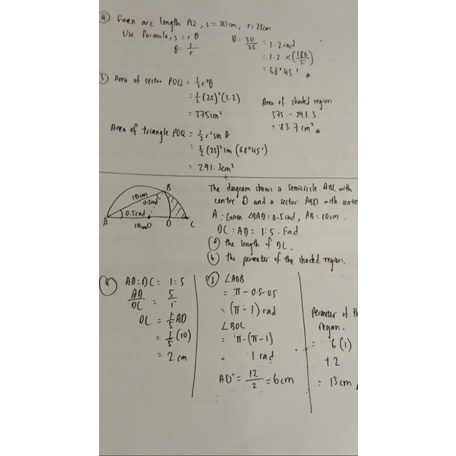 a) Given arc length PQ, s = 30cm, r = 25cm
Use formula, s = rθ
θ = s/r
θ = 30/25 = 1.2 rad
= 1.2 × (180/π)
= 68°45'
b) Area of sector POQ = 1/2 r²θ
= 1/2 (25)² (1.2)
= 375cm²
Area of triangle POQ = 1/2 r² sin θ
= 1/2 (25)² sin (68°45')
= 291.3cm²
Area of shaded region
375 - 291.3
= 83.7 cm²
B
10cm
0.5rad
0.5rad
A
O
D
C
10cm
The diagram shows a semicircle ABC with
centre O and a sector ABD with centre
A. Given ∠BAD = 0.5rad, AB = 10cm.
DC : AD = 1:5. Find
a) the length of DC.
b) the perimeter of the shaded region.
a) AD:DC = 1:5
AD/DC = 5/1
DC = 1/5 AD
= 1/5 (10)
= 2 cm
b) ∠AOB
= π - 0.5 - 0.5
= (π - 1) rad
∠BOC
= π - (π - 1)
= 1 rad
AO = 12/2 = 6cm
Perimeter of the
region.
= 6(1)
+ 2
= 13cm